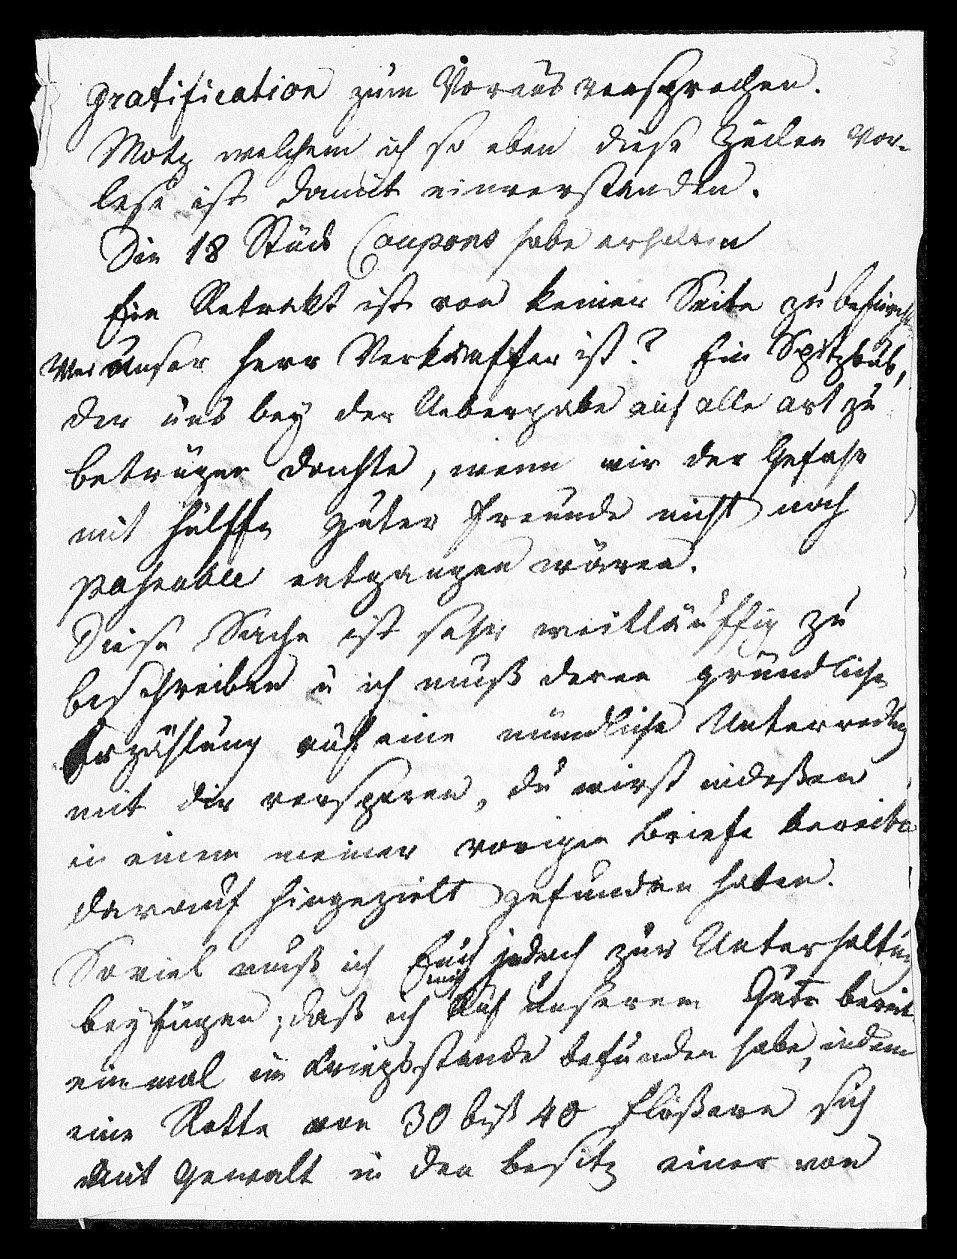 Gratification zum Voraus versprechen.
Motz welchem ich so eben diese Zeilen vor-
lese ist damit einverstanden.
Die 18 Stück Coupons habe erhalten
Ein Retrakt ist von keiner Seite zu befürchten
Wer unser Herr Verkäuffer ist? Ein Spitzbub,
der uns bey der Uebergabe auf alle art zu
betrügen dachte, wenn wir der Gefahr
mit hülffe guter Freunde nicht noch
entgangen wären.
Diese Sache ist sehr weitläuffig zu
beschreiben u ich muß deren gründliche
Erzählung auf eine mündliche Unterredung
mit dir versparen, du wirst indeßen
in einem meiner vorigen Briefe bereits
darauf hingezielt gefunden haben.
Soviel muß ich Euch jedoch zur Unterhaltung
beyfügen, daß ich mich auf unserem Gute bereits
einmal im Kriegsstande befunden habe, indem
eine Rotte von 30 biß 40 Flößern sich
mit Gewalt in den besitz einer von